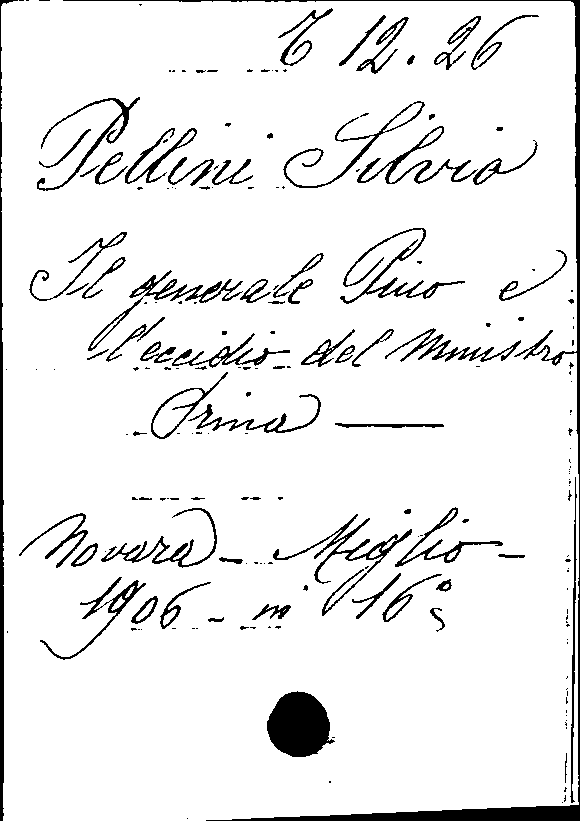 6 12.26
Pellini Silvio
Il generale Pino e
l'eccidio del Ministro
Prina —
Novara - Miglio -
1906 - in 16°